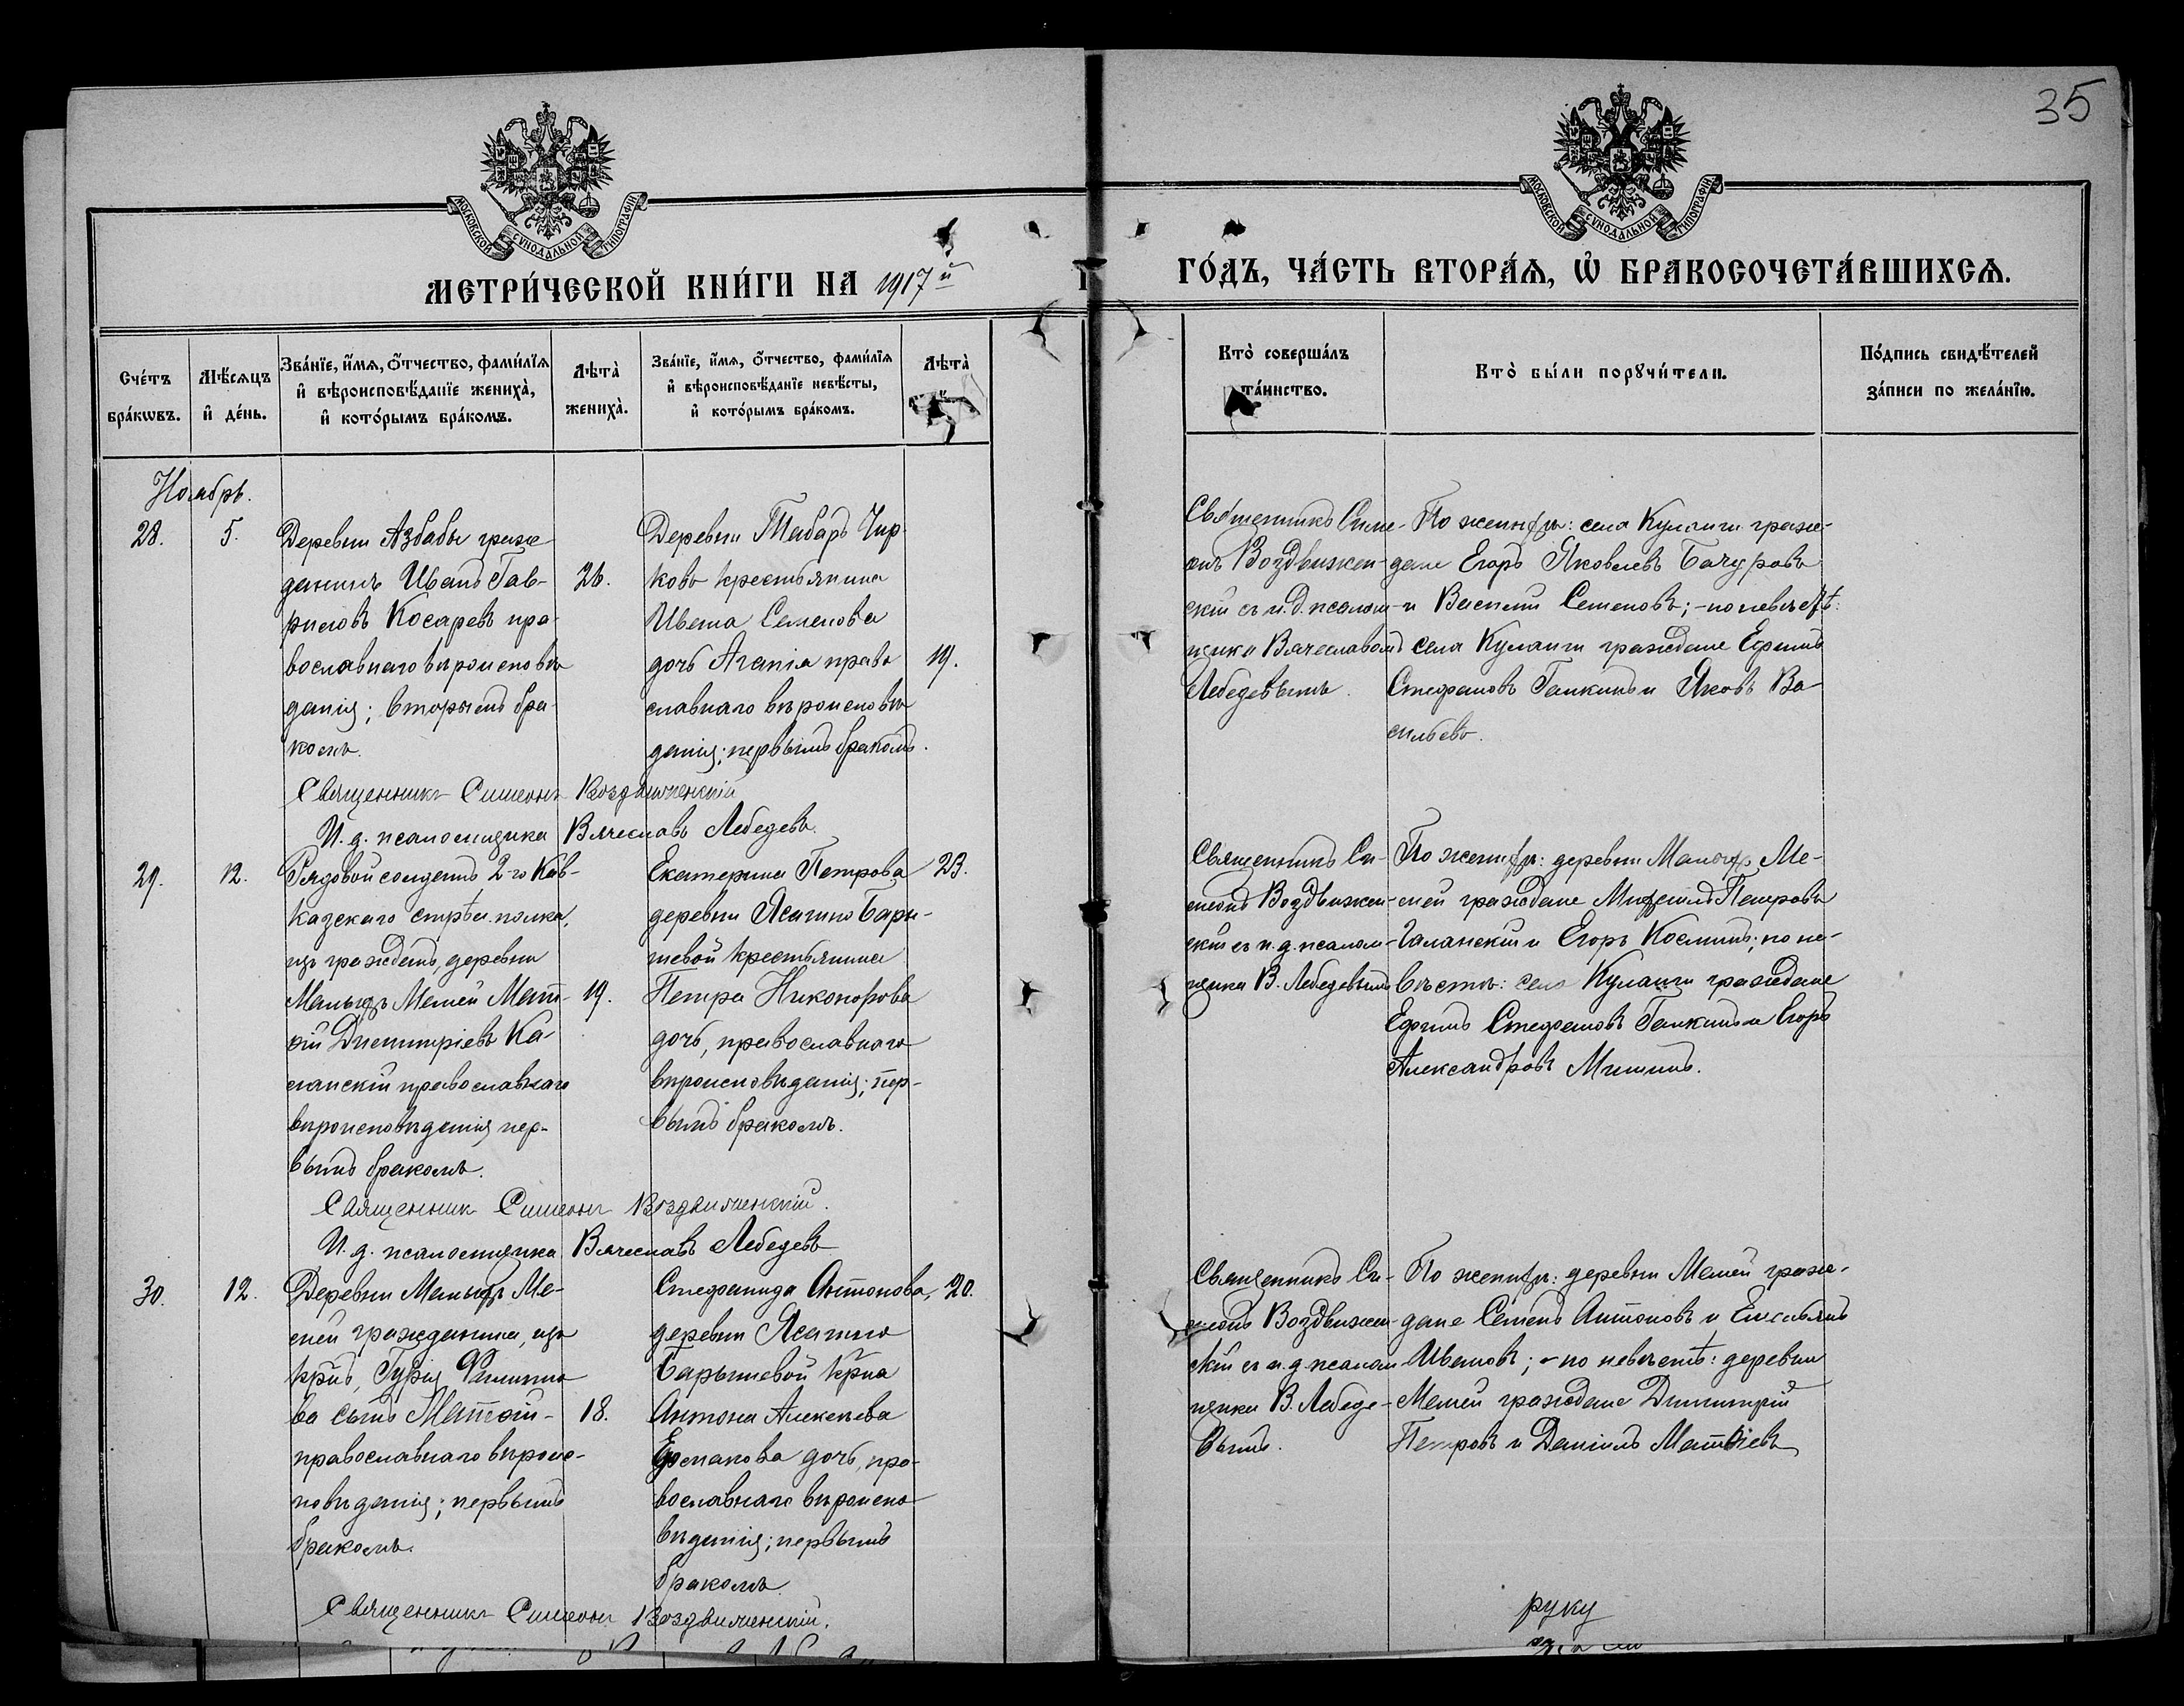 35
МОСКОВСКОЙ СѴНОДАЛЬНОЙ ТИПОГРАФІИ
МОСКОВСКОЙ СѴНОДАЛЬНОЙ ТИПОГРАФІИ
МЕТРИ́ЧЕСКОЙ КНИ́ГИ НА 1917й
ГО́ДЪ, ЧА́СТЬ ВТОРА́Ѧ, Ѡ҆ БРАКОСОЧЕТА́ВШИХСѦ.
Сче́тъ
бра́кѡвъ.
Мѣ́сяцъ
и҆ де́нь.
Зва́нїе, и҆́мя, ѻ҆́тчество, фами́лїя
и҆ вѣроисповѣ́данїе жениха̀,
и҆ кото́рымъ бра́комъ.
Лѣта̀
жениха̀.
Зва́нїе, и҆́мя, ѻ҆́тчество, фами́лїя
и҆ вѣроисповѣ́данїе невѣ́сты,
и҆ кото́рымъ бра́комъ.
Лѣта̀
Кто̀ соверша́лъ
та́инство.
Кто̀ бы́ли порꙋчи́тели.
По́дпись свидѣ́телей
за́писи по жела́нїю.
Ноябрь.
28.
5.
Деревни Азбабы граж-
данинъ Иванъ Гав-
риловъ Косаревъ пра-
вославнаго вѣроисповѣ
данія; вторымъ бра-
комъ.
26.
Деревни Табаръ Чир-
ковъ крестьянина
Ивана Семенова
дочь Агапія право
славнаго вѣроисповѣ
данія; первымъ бракомъ.
19.
Священникъ Симе-
онъ Воздвижен-
скій съ и.д. псалом-
щика Вячеславомъ
Лебедевымъ.
По женихѣ: села Куланги граж-
дане Егоръ Яковлевъ Бачуровъ
и Василій Семеновъ; - по невѣстѣ:
села Куланги граждане Ефимъ
Стефановъ Галкинъ и Яковъ Ва-
сильевъ.
Священникъ Симеонъ Воздвиженскій
И. д. псаломщика Вячеславъ Лебедевъ.
29.
12.
Рядовой солдатъ 2-го Кав-
казскаго стрѣл. полка,
изъ гражданъ, деревни
Малыхъ Мемей Мат-
ѳій Димитріевъ Ка-
ланскій православнаго
вѣроисповѣданія пер-
вымъ бракомъ.
19.
Екатерина Петрова
деревни Ясашно Бары-
шевой крестьянина
Петра Никонорова
дочь, православнаго
вѣроисповѣданія; пер-
вымъ бракомъ.
23.
Священникъ Си-
меонъ Воздвижен-
скій съ и.д. псалом-
щика В. Лебедевымъ
По женихѣ: деревни Малыхъ Ме-
мей граждане Михаилъ Петровъ
Галанскій и Егоръ Косминъ; по не-
вѣстѣ: села Куланги граждане
Ефимъ Стефановъ Галкинъ и Егоръ
Александровъ Мишинъ.
Священник Симеонъ Воздвиженскій.
И. д. псаломщика Вячеславъ Лебедевъ
30.
12.
Деревни Малыхъ Ме-
мей гражданина, изъ
кр̃нъ, Гурія Филиппо
ва сынъ Матѳій-
православнаго вѣроис-
повѣданія; первымъ
бракомъ.
18.
Стефанида Антонова,
деревни Ясашно
Барышевой кр̃на
Антона Алексѣева
Ермакова дочь, пра-
вославнаго вѣроиспо
вѣданія; первымъ
бракомъ.
20.
Священникъ Си-
меонъ Воздвижен-
скій съ и.д. псалом
щика В. Лебеде-
вымъ.
По женихѣ: деревни Мемей граж-
дане Семенъ Антоновъ и Емельянъ
Ивановъ; - по невѣстѣ: деревни
Мемей граждане Димитрій
Петровъ и Даніилъ Матвіевъ
Священникъ Симеонъ Воздвиженскій.
руку